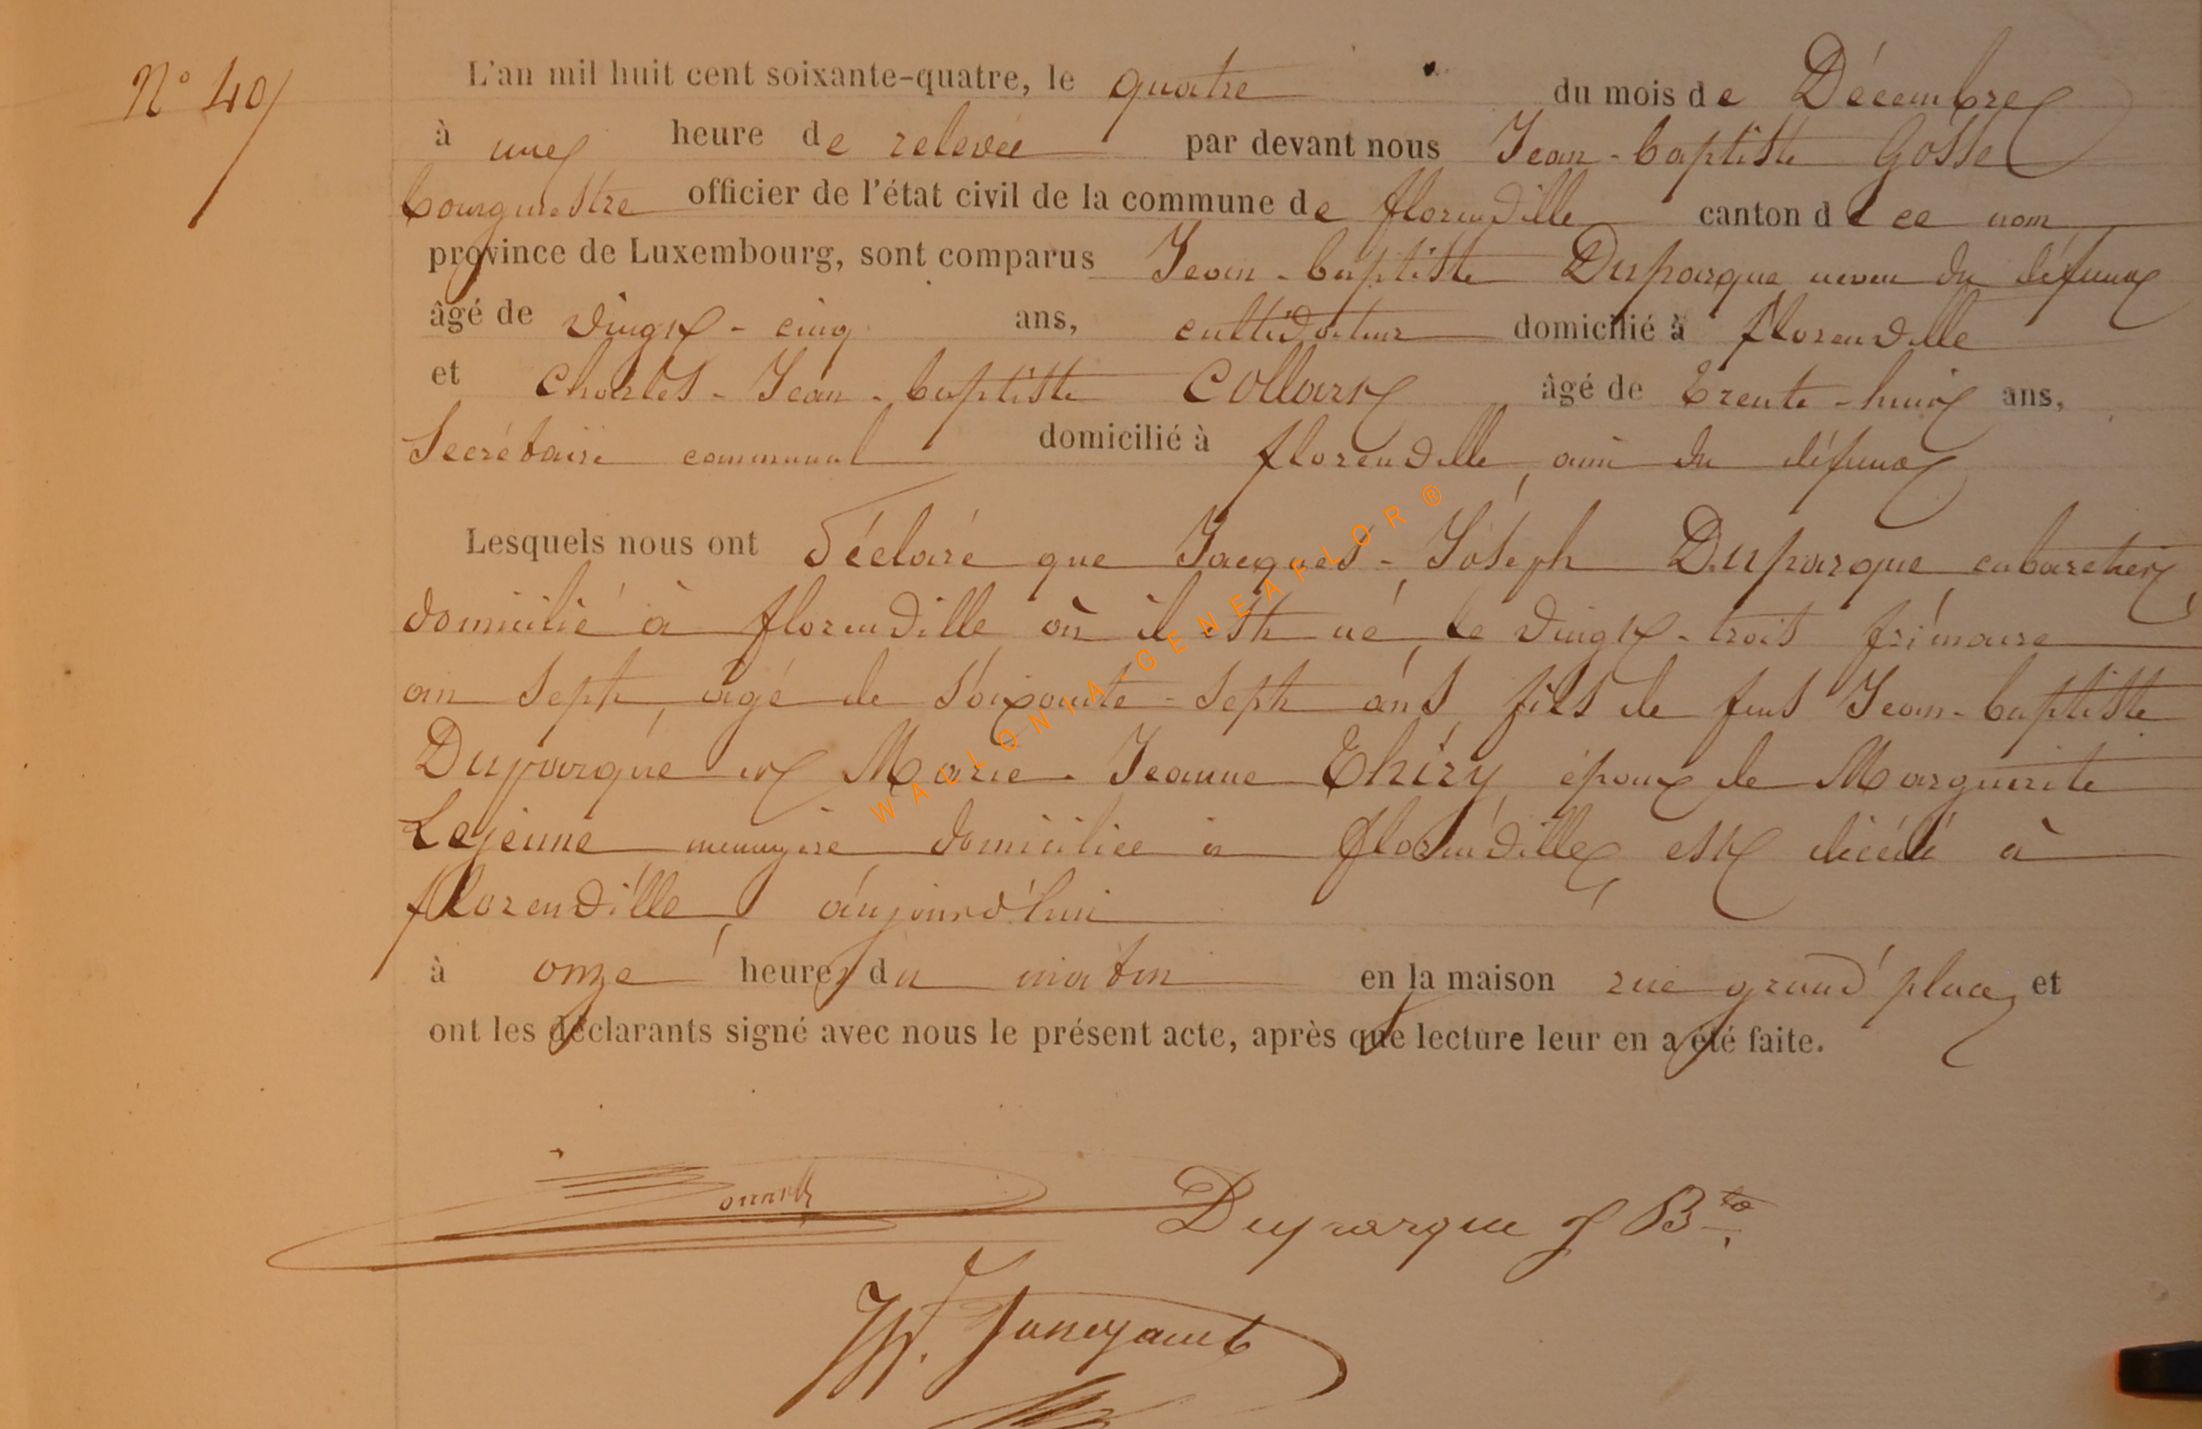 N° 40
L'an mil huit cent soixante-quatre, le quatre du mois de Décembre
à une heure de relevée par devant nous Jean-baptiste Gosse
bourgmestre officier de l'état civil de la commune de florenville canton de ce nom
province de Luxembourg, sont comparus Jean-baptiste Duparque neveu du défunt
âgé de vingt-cinq ans, cultivateur domicilié à florenville
et Charles-Jean-baptiste Collart âgé de trente-huit ans,
Secrétaire communal domicilié à florenville, ami du défunt
Lesquels nous ont déclaré que Jacques-Joseph Duparque, cabaretier,
domicilié à florenville, où il est né, le vingt-trois frimaire
an sept, âgé de soixante-sept ans, fils de feus Jean-baptiste
Duparque et Marie-Jeanne Thiry, époux de Marguerite
Lejeune, menagère domiciliée à florenville, est décédé à
florenville, aujourd'hui
à onze heures du matin en la maison rue grand'place, et
ont les déclarants signé avec nous le présent acte, après que lecture leur en a été faite.
Duparque J Bte
WALLONIA-GENEAFLOR®